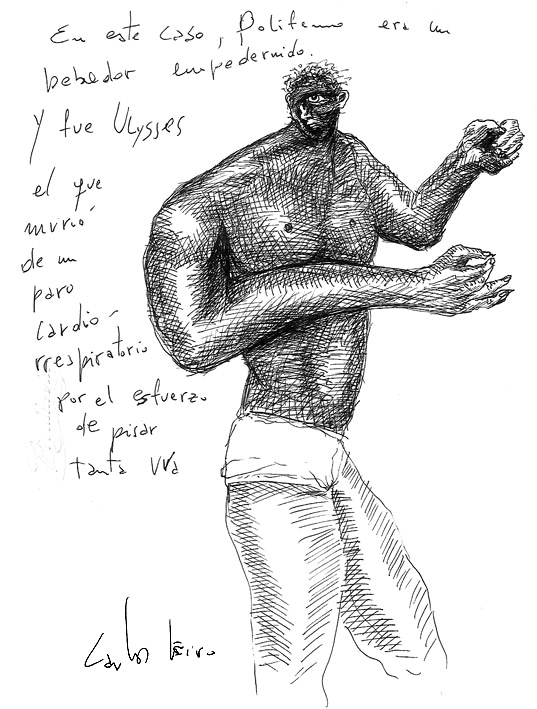 En este caso, Polifemo era un
bebedor empedernido.
Y fue Ulysses
el que
murió
de un
paro
cardio-
rrespiratorio
por el esfuerzo
de pisar
tanta uva
Carlos